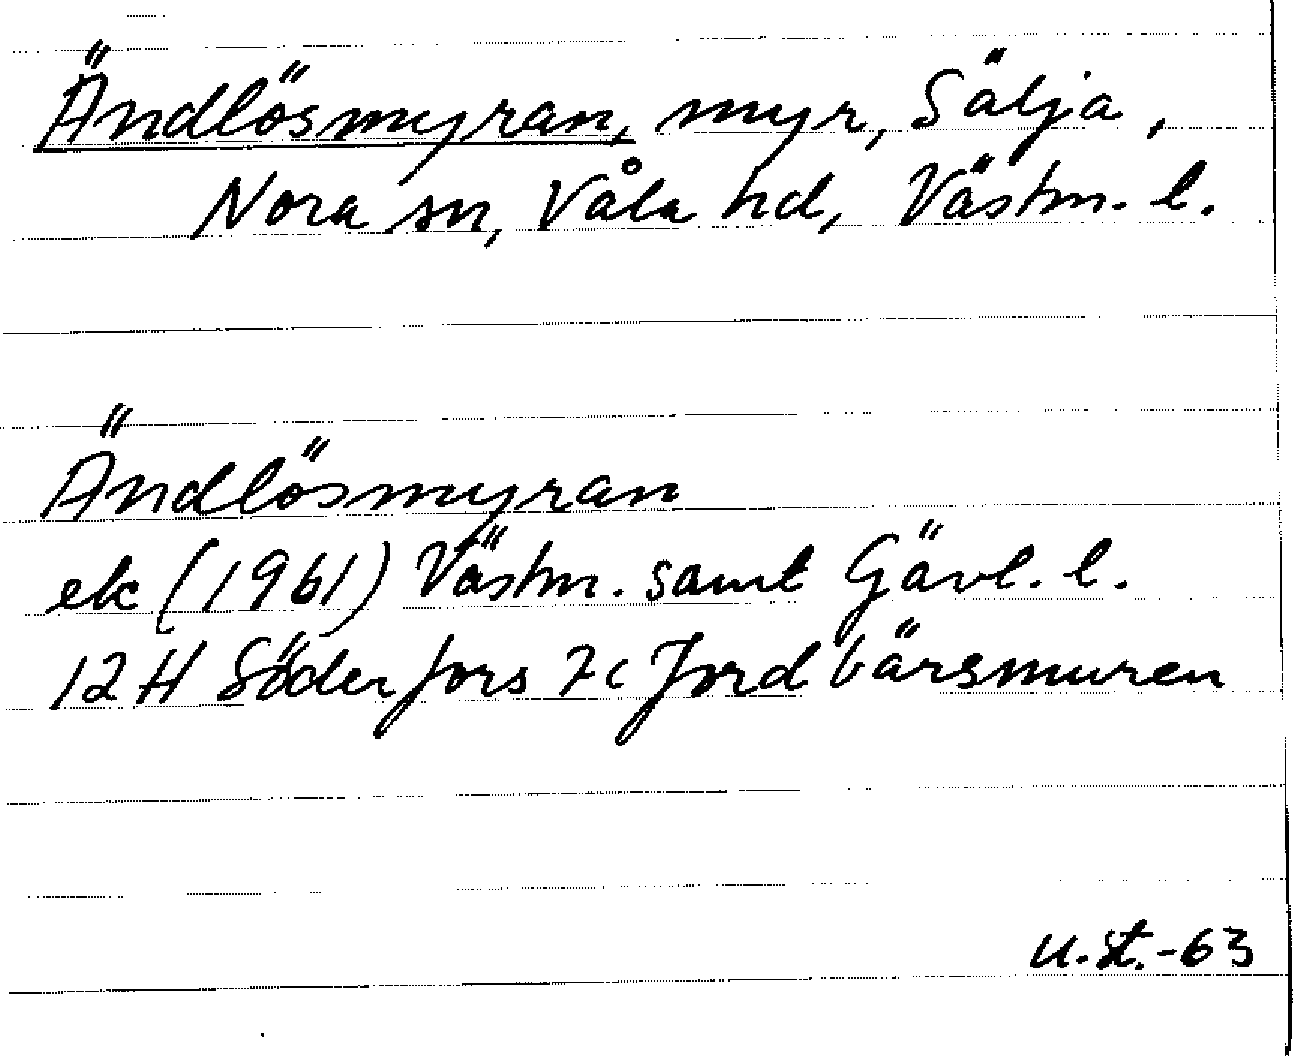 Ändlösmyran, myr, Sälja,
Nora sn, Våla hd, Västm. l.
Ändlösmyran
ek (1961) Västm. samt Gävl. l.
12 H Söderfors 7c Jordbärsmuren
U. St. -63